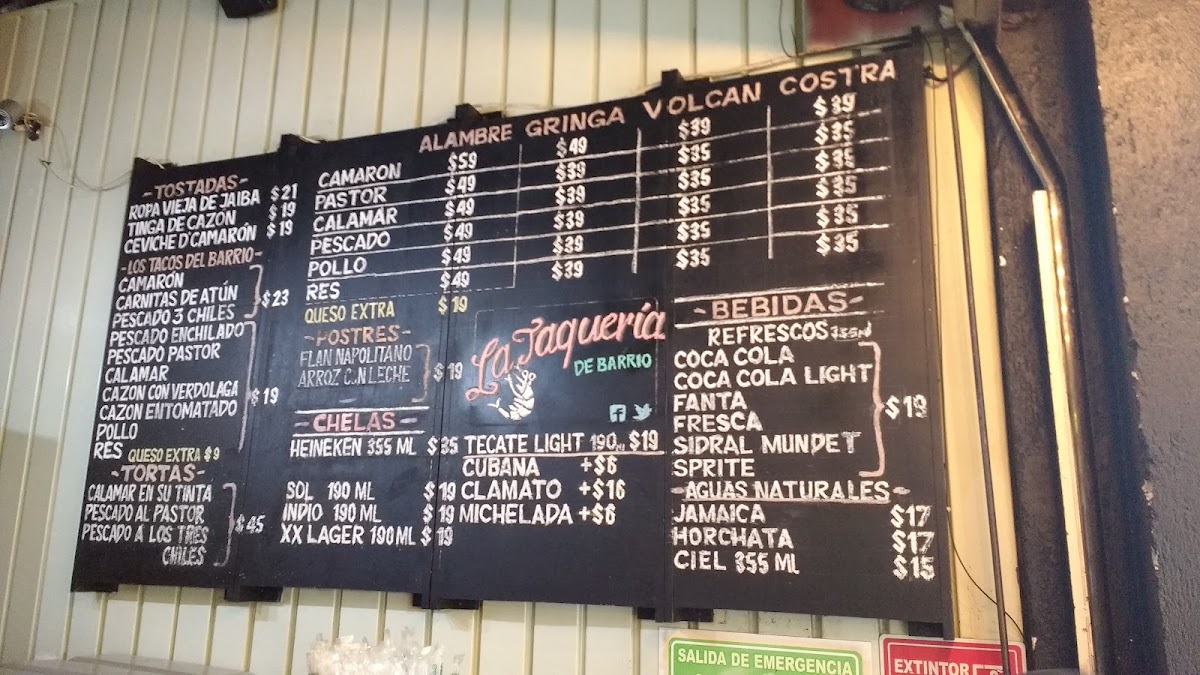 -TOSTADAS-
ROPA VIEJA DE JAIBA $21
TINGA DE CAZON $19
CEVICHE D'CAMARÓN $19
-LOS TACOS DEL BARRIO-
CAMARÓN
CARNITAS DE ATÚN $23
PESCADO 3 CHILES
PESCADO ENCHILADO
PESCADO PASTOR
CALAMAR
CAZON CON VERDOLAGA $19
CAZON ENTOMATADO
POLLO
RES QUESO EXTRA $9
-TORTAS-
CALAMAR EN SU TINTA
PESCADO AL PASTOR $45
PESCADO A LOS TRES
CHILES
ALAMBRE GRINGA VOLCAN COSTRA
CAMARON $59 $49 $39 $39
PASTOR $49 $39 $35 $35
CALAMAR $49 $39 $35 $35
PESCADO $49 $39 $35 $35
POLLO $49 $39 $35 $35
RES $49 $39 $35 $35
QUESO EXTRA $19
-POSTRES-
FLAN NAPOLITANO
ARROZ CON LECHE $19
-CHELAS-
HEINEKEN 355 ML $35
SOL 190 ML $19
INDIO 190 ML $19
XX LAGER 190 ML $19
La Taquería
DE BARRIO
TECATE LIGHT 190ML $19
CUBANA +$6
CLAMATO +$16
MICHELADA +$6
-BEBIDAS-
REFRESCOS 355ML
COCA COLA
COCA COLA LIGHT
FANTA $19
FRESCA
SIDRAL MUNDET
SPRITE
-AGUAS NATURALES-
JAMAICA $17
HORCHATA $17
CIEL 355 ML $15
SALIDA DE EMERGENCIA
EXTINTOR